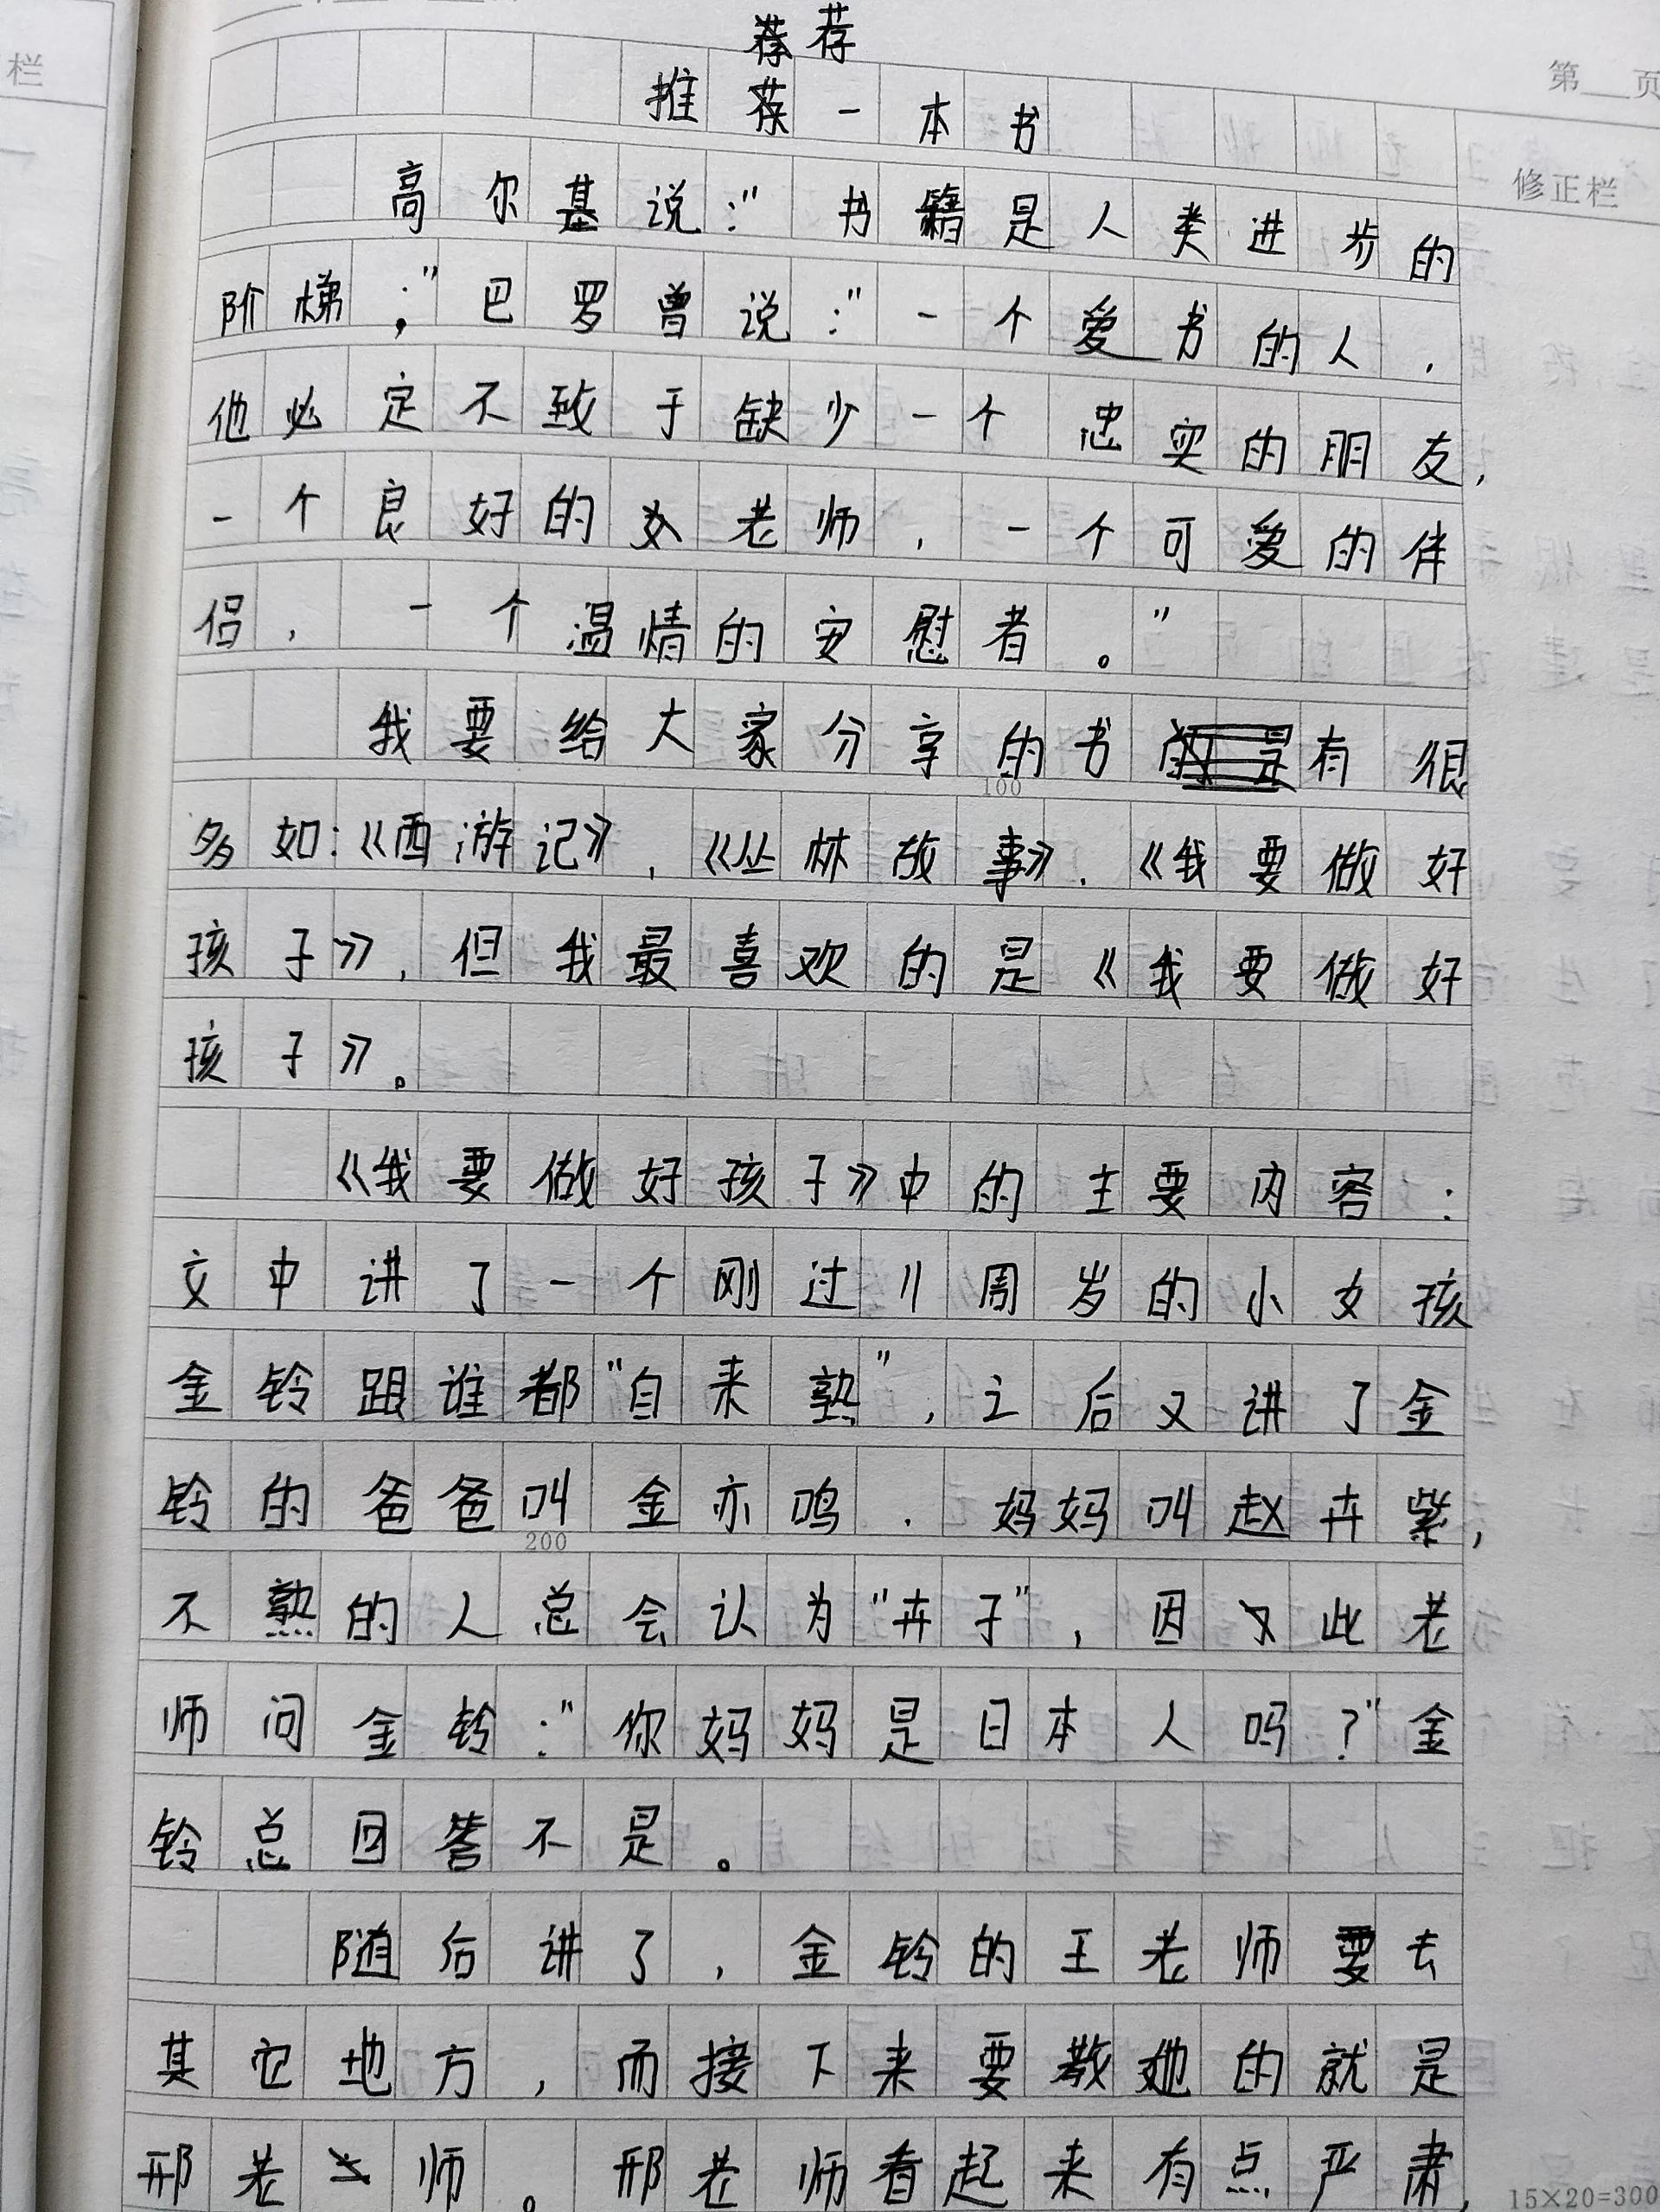 荐荐
推荐一本书
第__页
栏
修正栏
高尔基说:"书籍是人类进步的
阶梯;"巴罗曾说:"一个爱书的人,
他必定不致于缺少一个忠实的朋友,
一个良好的老师,一个可爱的伴
侣,一个温情的安慰者。"
我要给大家分享的书有很
100
多如:《西游记》,《丛林故事》,《我要做好
孩子》,但我最喜欢的是《我要做好
孩子》。
《我要做好孩子》中的主要内容:
文中讲了一个刚过11周岁的小女孩
金铃跟谁都"自来熟",之后又讲了金
铃的爸爸叫金亦鸣.妈妈叫赵卉紫,
200
不熟的人总会认为"卉子",因此老
师问金铃:"你妈妈是日本人吗?"金
铃总回答不是。
随后讲了,金铃的王老师要去
其它地方,而接下来要教她的就是
邢老师。邢老师看起来有点严肃,
15×20=300